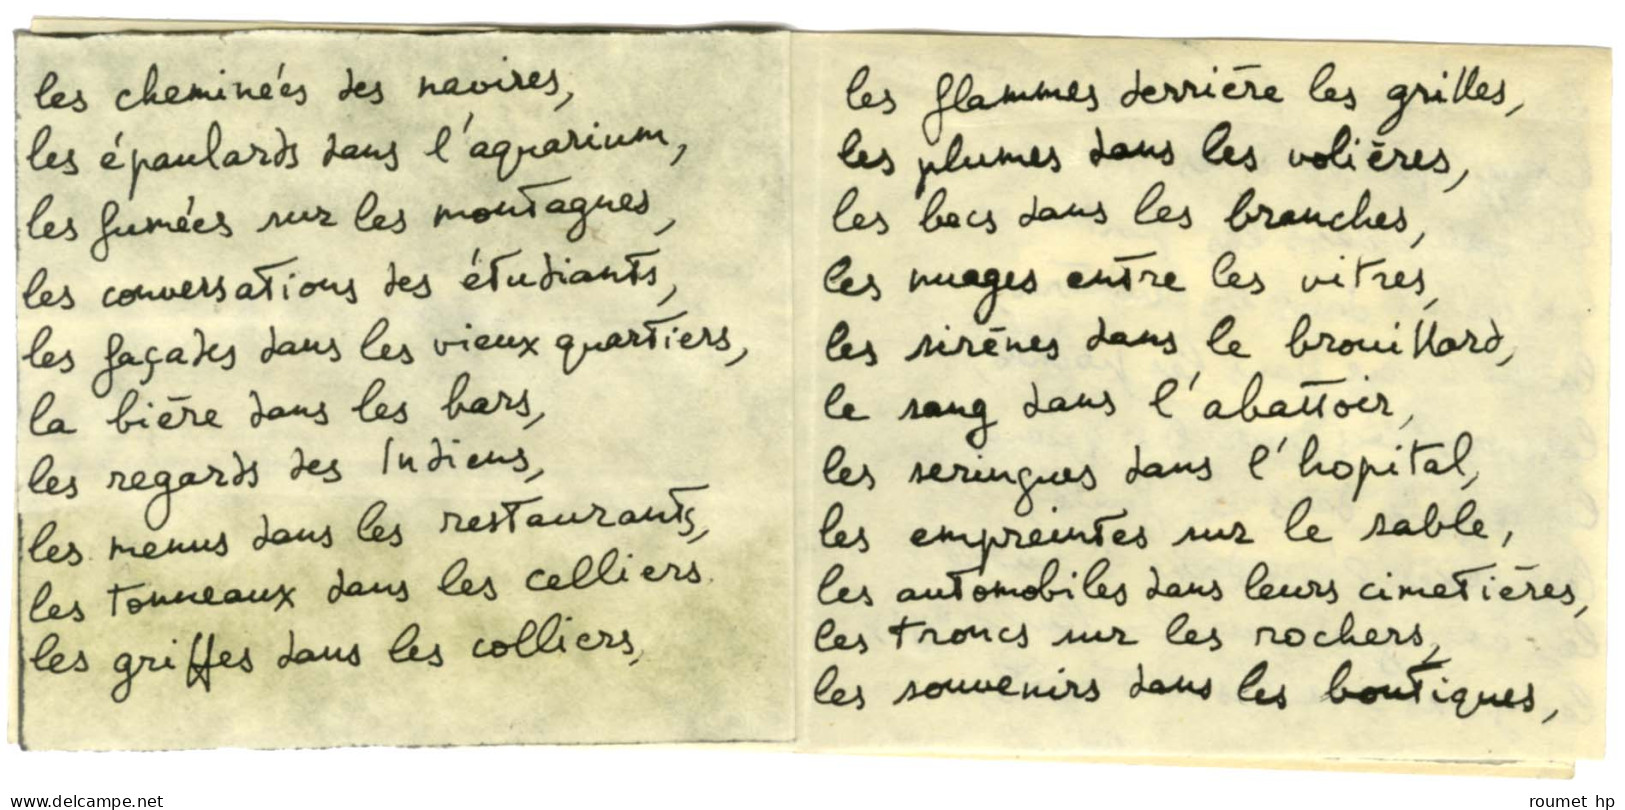 les cheminées des navires,
les épaulards dans l'aquarium,
les fumées sur les montagnes,
les conversations des étudiants,
les façades dans les vieux quartiers,
la bière dans les bars,
les regards des Indiens,
les menus dans les restaurants,
les tonneaux dans les celliers.
les griffes dans les colliers,
les flammes derrière les grilles,
les plumes dans les volières,
les becs dans les branches,
les nuages entre les vitres,
les sirènes dans le brouillard,
le sang dans l'abattoir,
les seringues dans l'hopital,
les empreintes sur le sable,
les automobiles dans leurs cimetières,
les troncs sur les rochers,
les souvenirs dans les boutiques,
www.delcampe.net
roumet hp